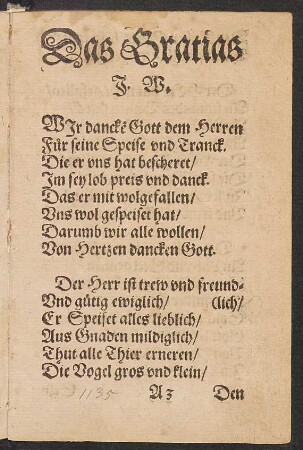 Das Gratias
J. W.
WJr danckē Gott dem Herren
Für seine Speise vnd Tranck.
Die er vns hat bescheret/
Im sey lob preis vnd danck.
Das er mit wolgefallen/
Vns wol gespeiset hat/
Darumb wir alle wollen/
Von Hertzen dancken Gott.
Der Herr ist trew vnd freund-
Vnd gütig ewiglich/ (lich/
Er Speiset alles lieblich/
Aus Gnaden mildiglich/
Thut alle Thier erneren/
Die Vogel gros vnd klein/
A3 Den
1135